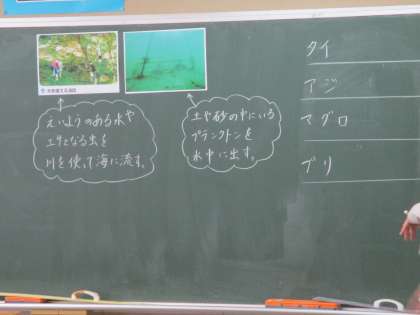 えいようのある水や
エサとなる虫を
川を使って海に流す。
土や砂の中にいる
プランクトンを
水中に出す。
タイ
アジ
マグロ
ブリ